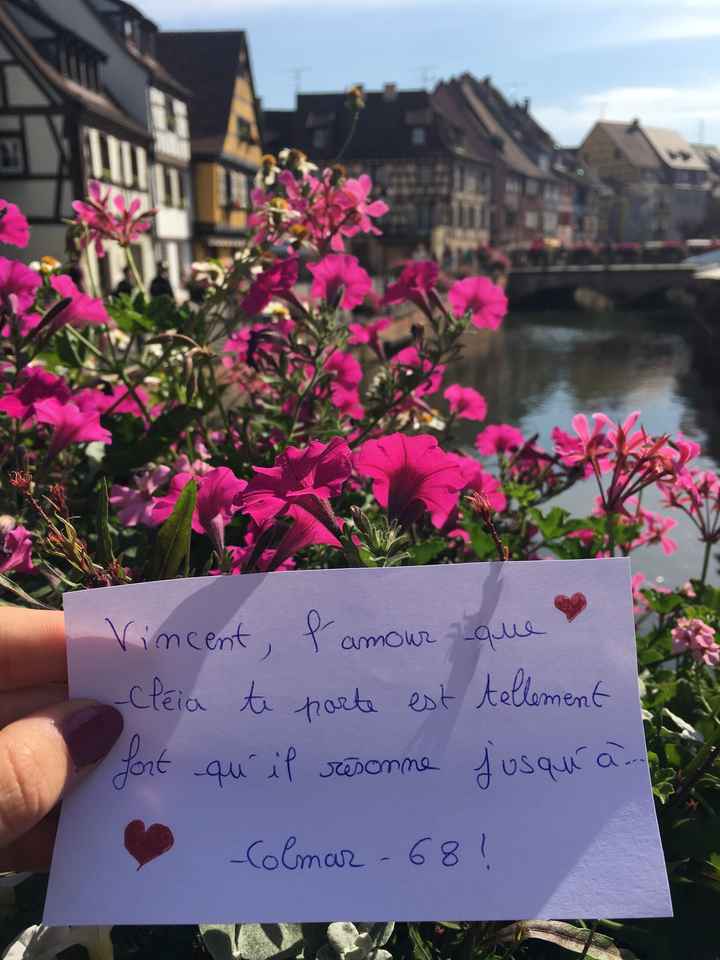 Vincent, l'amour que
Cléia te porte est tellement
fort qu'il résonne jusqu'à...
-Colmar - 68 !